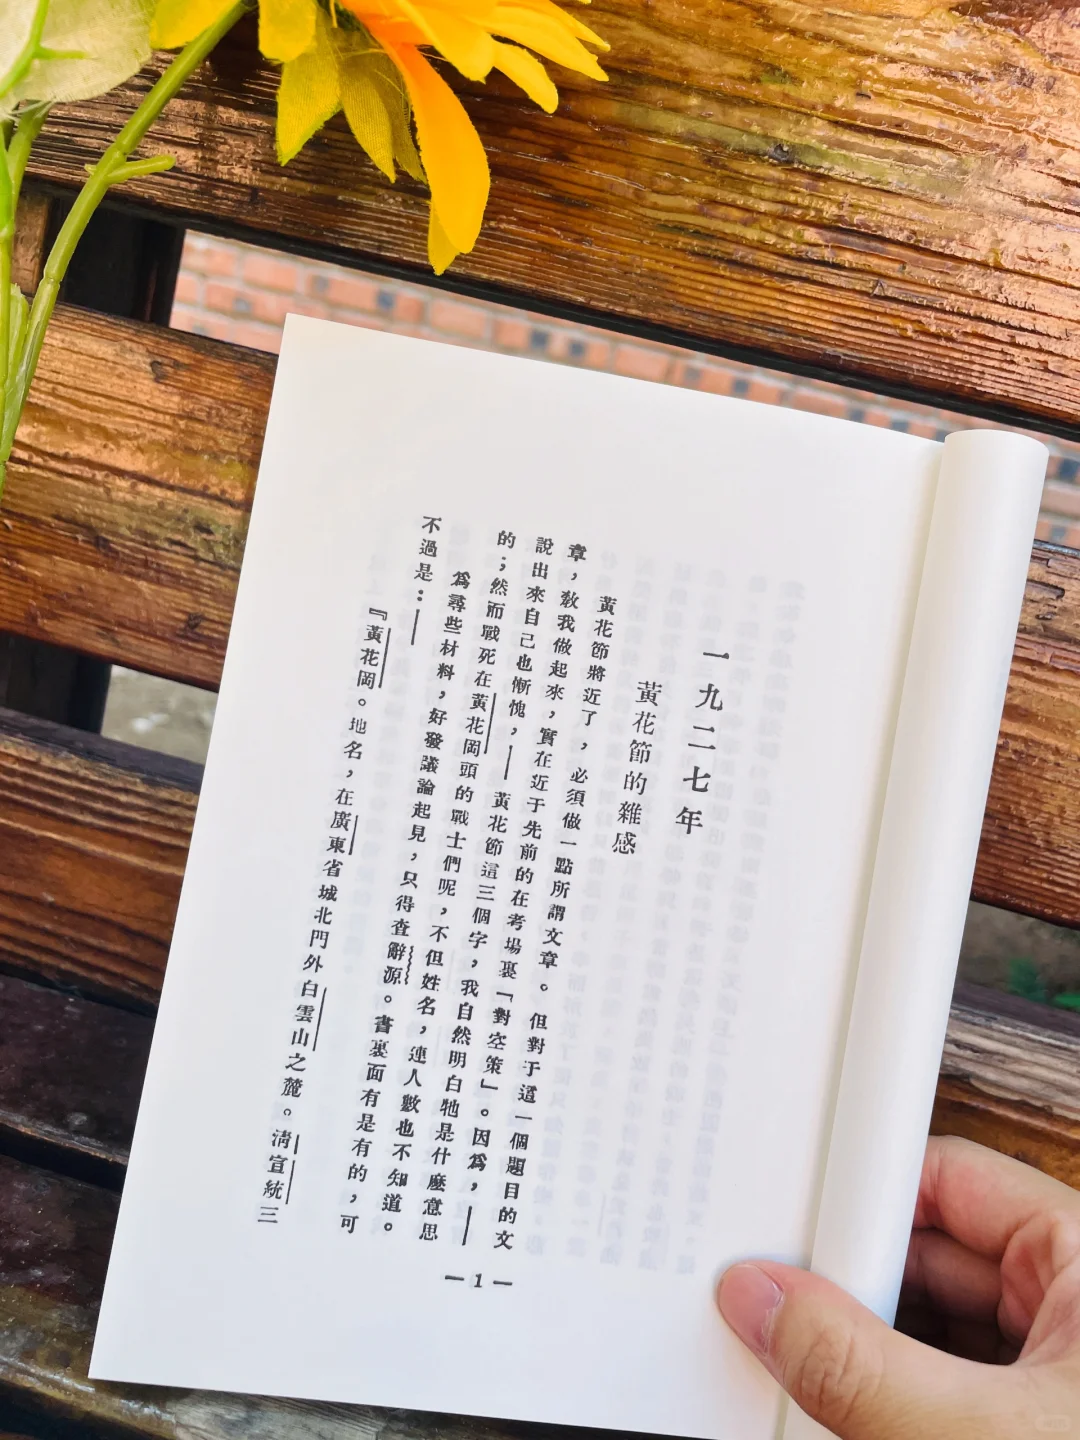 一九二七年
黃花節的雜感
黃花節將近了，必須做一點所謂文章。但對于這一個題目的文
章，敎我做起來，實在近于先前的在考場裏「對空策」。因爲，——
說出來自己也慚愧，——黃花節這三個字，我自然明白牠是什麽意思
的；然而戰死在黃花岡頭的戰士們呢，不但姓名，連人數也不知道。
爲尋些材料，好發議論起見，只得查辭源。書裏面有是有的，可
不過是：——
『黃花岡。地名，在廣東省城北門外白雲山之麓。淸宣統三
—1—